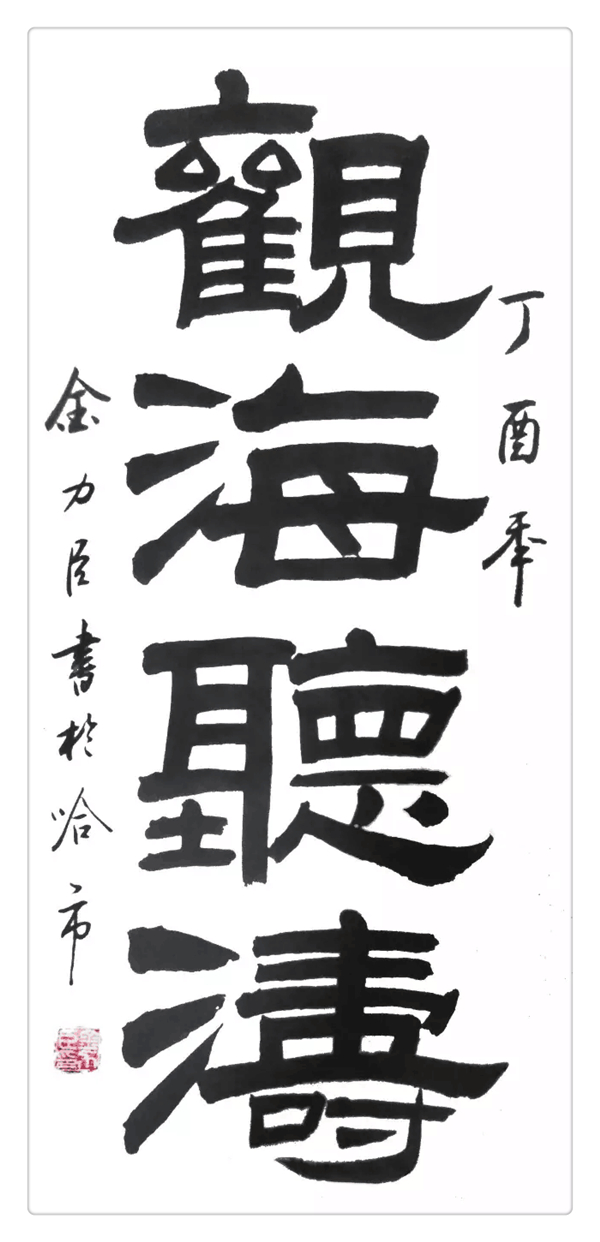 丁酉年
觀海聽濤
金力臣書於哈市